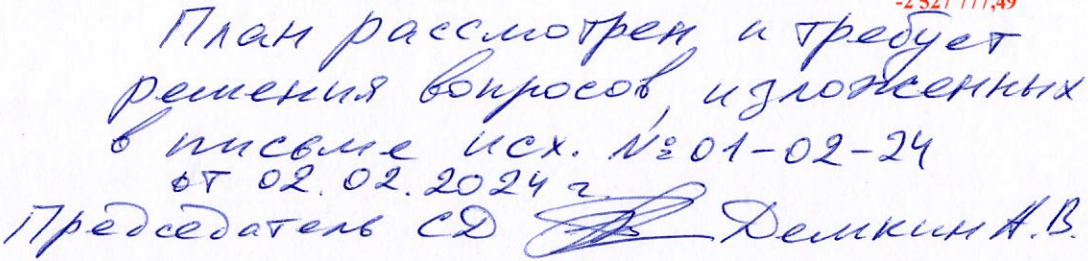 -2 527 777,49
План рассмотрен и требует
решения вопросов, изложенных
в письме исх. №01-02-24
от 02.02.2024 г.
Председатель СД Демкин А.В.